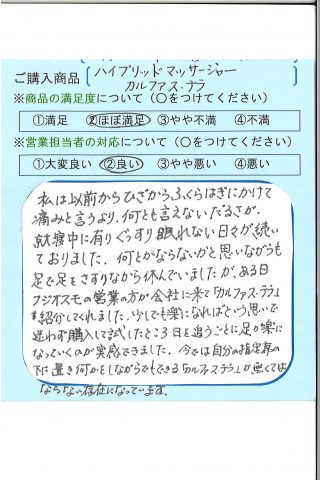 ご購入商品 ハイブリッドマッサージャー
カルファス・ナラ
※商品の満足度について(〇をつけてください)
①満足 ②ほぼ満足 ③やや不満 ④不満
※営業担当者の対応について(〇をつけてください)
①大変良い ②良い ③やや悪い ④悪い
私は以前からひざからふくらはぎにかけて
痛みと言うより、何とも言えないだるさが、
就寝中に有りぐっすり眠れない日々が続い
ておりました。何とかならないかと思いながらも
足で足をさすりながら休んでいましたが、ある日
フジオスモの営業の方が会社に来て「カルファス・テラ」
を紹介してくれました。少しでも楽になればという思いで
迷わず購入して試したところ日を追うごとに足が楽に
なっていくのが実感できました。今では自分の指定席の
下に置き何かをしながらでもできる「カルファステラ」が無くては
ならない存在になっています。